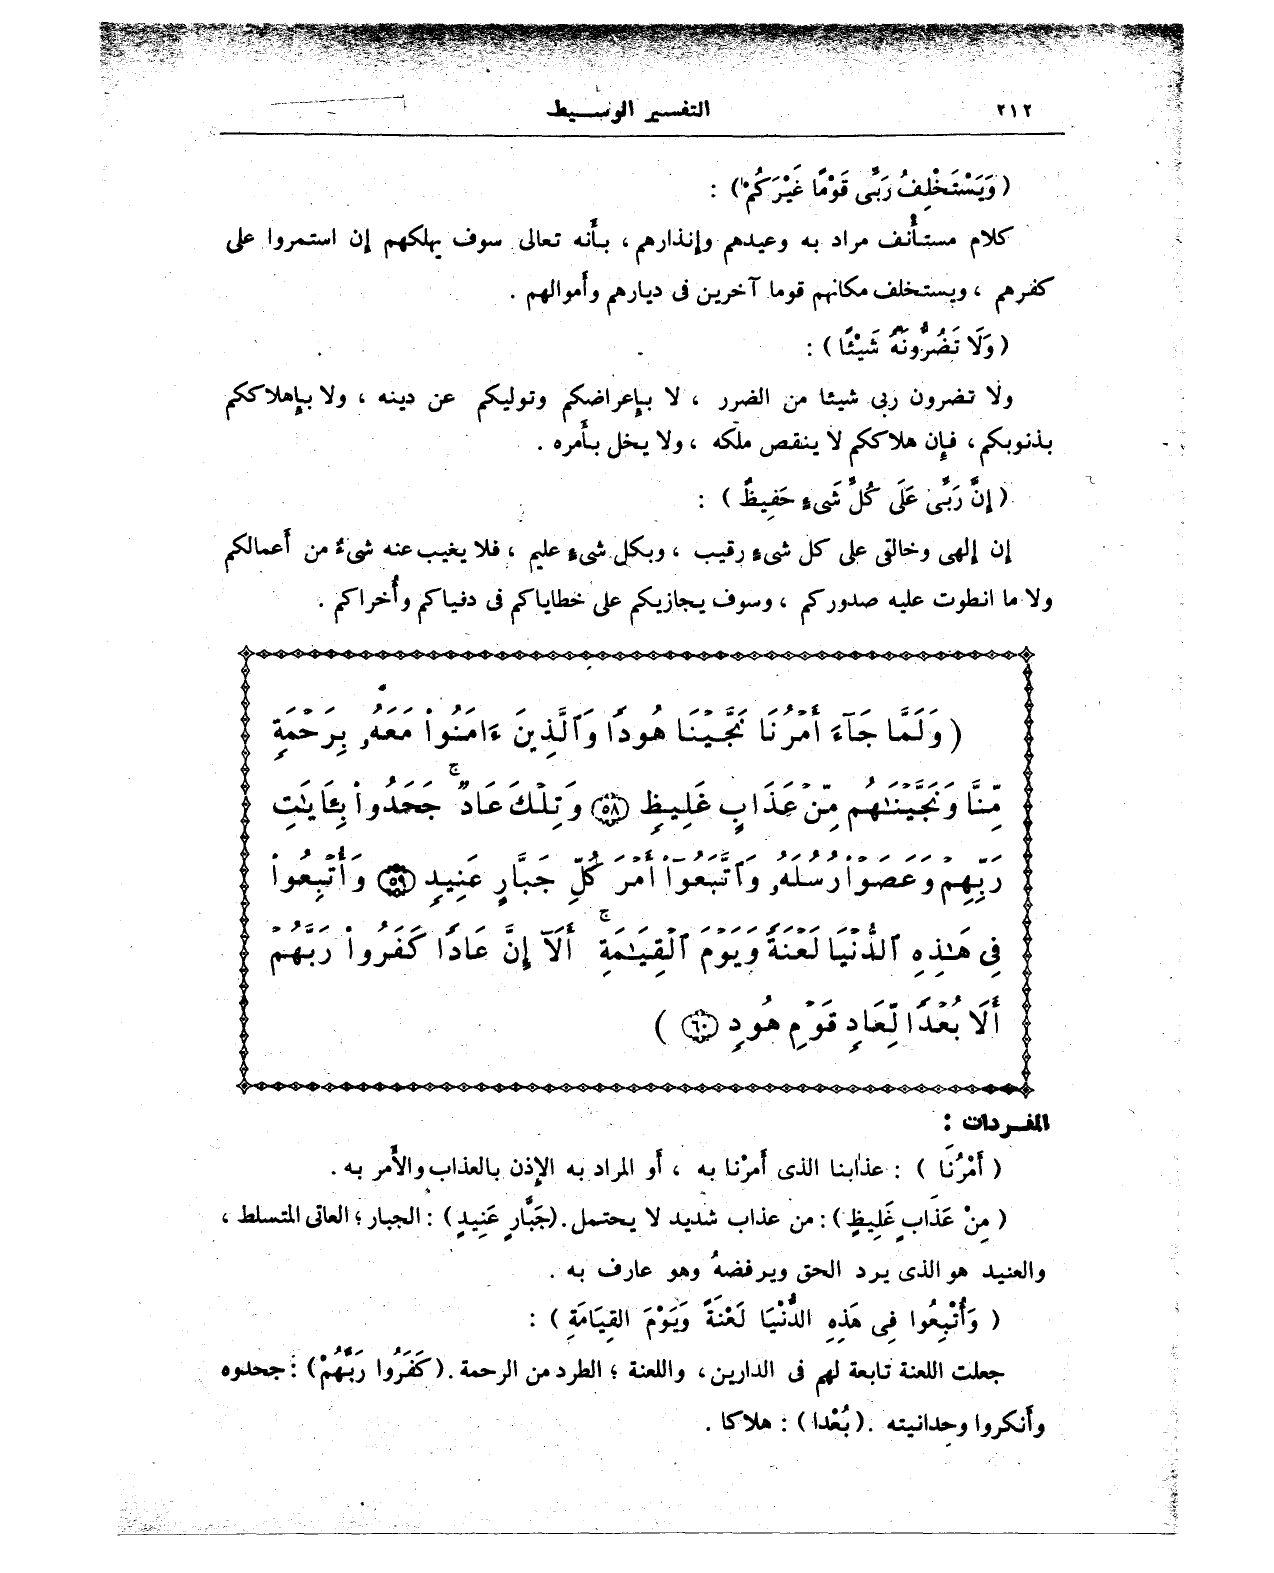 ٢١٢
التفسير الوسيط
(وَيَسْتَخْلِفُ رَبِّى قَوْمًا غَيْرَكُمْ) :
كلام مستأنف مراد به وعيدهم وإنذارهم ، بأنه تعالى سوف يهلكهم إن استمروا على
كفرهم ، ويستخلف مكانهم قوما آخرين فى ديارهم وأموالهم .
(وَلَا تَضُرُّونَهُ شَيْئًا) :
ولا تضرون ربى شيئا من الضرر ، لا بإعراضكم وتوليكم عن دينه ، ولا بإهلاككم
بذنوبكم، فإن هلاككم لا ينقص ملكه ، ولا يخل بأمره .
(إِنَّ رَبِّى عَلَى كُلِّ شَىءٍ حَفِيظٌ) :
إن إلهى وخالقى على كل شىءٍ رقيب ، وبكل شىءٍ عليم ، فلا يغيب عنه شىءٌ من أعمالكم
ولا ما انطوت عليه صدوركم ، وسوف يجازيكم على خطاياكم فى دنياكم وأُخراكم .
(وَلَمَّا جَآءَ أَمْرُنَا نَجَّيْنَا هُودًا وَٱلَّذِينَ ءَامَنُوا۟ مَعَهُۥ بِرَحْمَةٍ
مِّنَّا وَنَجَّيْنَـٰهُم مِّنْ عَذَابٍ غَلِيظٍ ٥٨ وَتِلْكَ عَادٌ ۖ جَحَدُوا۟ بِـَٔايَـٰتِ
رَبِّهِمْ وَعَصَوْا۟ رُسُلَهُۥ وَٱتَّبَعُوٓا۟ أَمْرَ كُلِّ جَبَّارٍ عَنِيدٍ ٥٩ وَأُتْبِعُوا۟
فِى هَـٰذِهِ ٱلدُّنْيَا لَعْنَةً وَيَوْمَ ٱلْقِيَـٰمَةِ ۗ أَلَآ إِنَّ عَادًا كَفَرُوا۟ رَبَّهُمْ
أَلَا بُعْدًا لِّعَادٍ قَوْمِ هُودٍ ٦٠ )
المفـردات :
(أَمْرُنَا ) : عذابنا الذى أمرْنا به ، أو المراد به الإذن بالعذاب والأمر به .
(مِنْ عَذَابٍ غَلِيظٍ) : من عذاب شديد لا يحتمل .(جَبَّارٍ عَنِيدٍ) : الجبار ؛ العاتى المتسلط ،
والعنيد هو الذى يرد الحق ويرفضهُ وهو عارف به .
(وَأُتْبِعُوا فِى هَذِهِ الدُّنْيَا لَعْنَةً وَيَوْمَ القِيَامَةِ) :
جعلت اللعنة تابعة لهم فى الدارين ، واللعنة ؛ الطرد من الرحمة .(كَفَرُوا رَبَّهُمْ) : جحدوه
وأنكروا وحدانيته .(بُعْدا) : هلاكا .